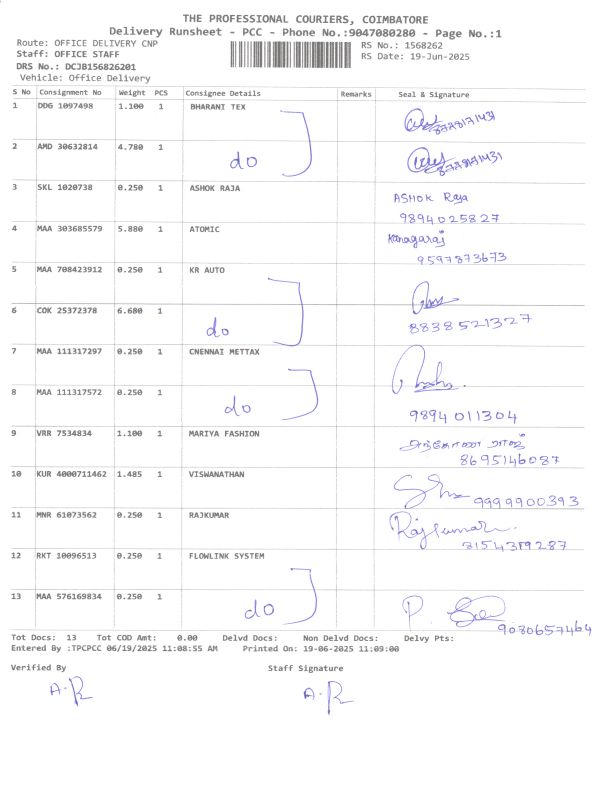 THE PROFESSIONAL COURIERS, COIMBATORE
Delivery Runsheet - PCC - Phone No.:9047080280 - Page No.:1
Route: OFFICE DELIVERY CNP RS No.: 1568262
Staff: OFFICE STAFF RS Date: 19-Jun-2025
DRS No.: DCJB156826201
Vehicle: Office Delivery
S No Consignment No Weight PCS Consignee Details Remarks Seal & Signature
1 DDG 1097498 1.100 1 BHARANI TEX
8778171431
2 AMD 30632814 4.780 1 do
3 SKL 1020738 0.250 1 ASHOK RAJA ASHOK Raja
9894025827
4 MAA 303685579 5.880 1 ATOMIC Kanagaraj
9597873673
5 MAA 708423912 0.250 1 KR AUTO
6 COK 25372378 6.680 1 do 8838521327
7 MAA 111317297 0.250 1 CNENNAI METTAX
8 MAA 111317572 0.250 1 do 9894011304
9 VRR 7534834 1.100 1 MARIYA FASHION அந்தோணி ராஜ்
8695146087
10 KUR 4000711462 1.485 1 VISWANATHAN 9999900393
11 MNR 61073562 0.250 1 RAJKUMAR Rajkumar
12 RKT 10096513 0.250 1 FLOWLINK SYSTEM
13 MAA 576169834 0.250 1 do P.
9080657464
Tot Docs: 13 Tot COD Amt: 0.00 Delvd Docs: Non Delvd Docs: Delvy Pts:
Entered By :TPCPCC 06/19/2025 11:08:55 AM Printed On: 19-06-2025 11:09:00
Verified By Staff Signature
A.R A.R